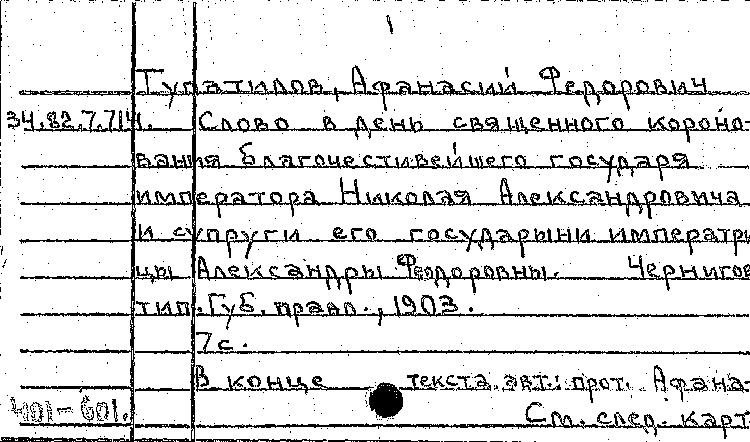 1
Тупатилов, Афанасий Федорович
34.82.7.714. Слово в день священного короно-
вания благочестивейшего государя
императора Николая Александровича
и супруги его государыни императри
цы Александры Феодоровны. Чернигов
тип. Губ. правл., 1903.
7 с.
В конце текста авт.: прот. Афана-
401-601. См. след. карт